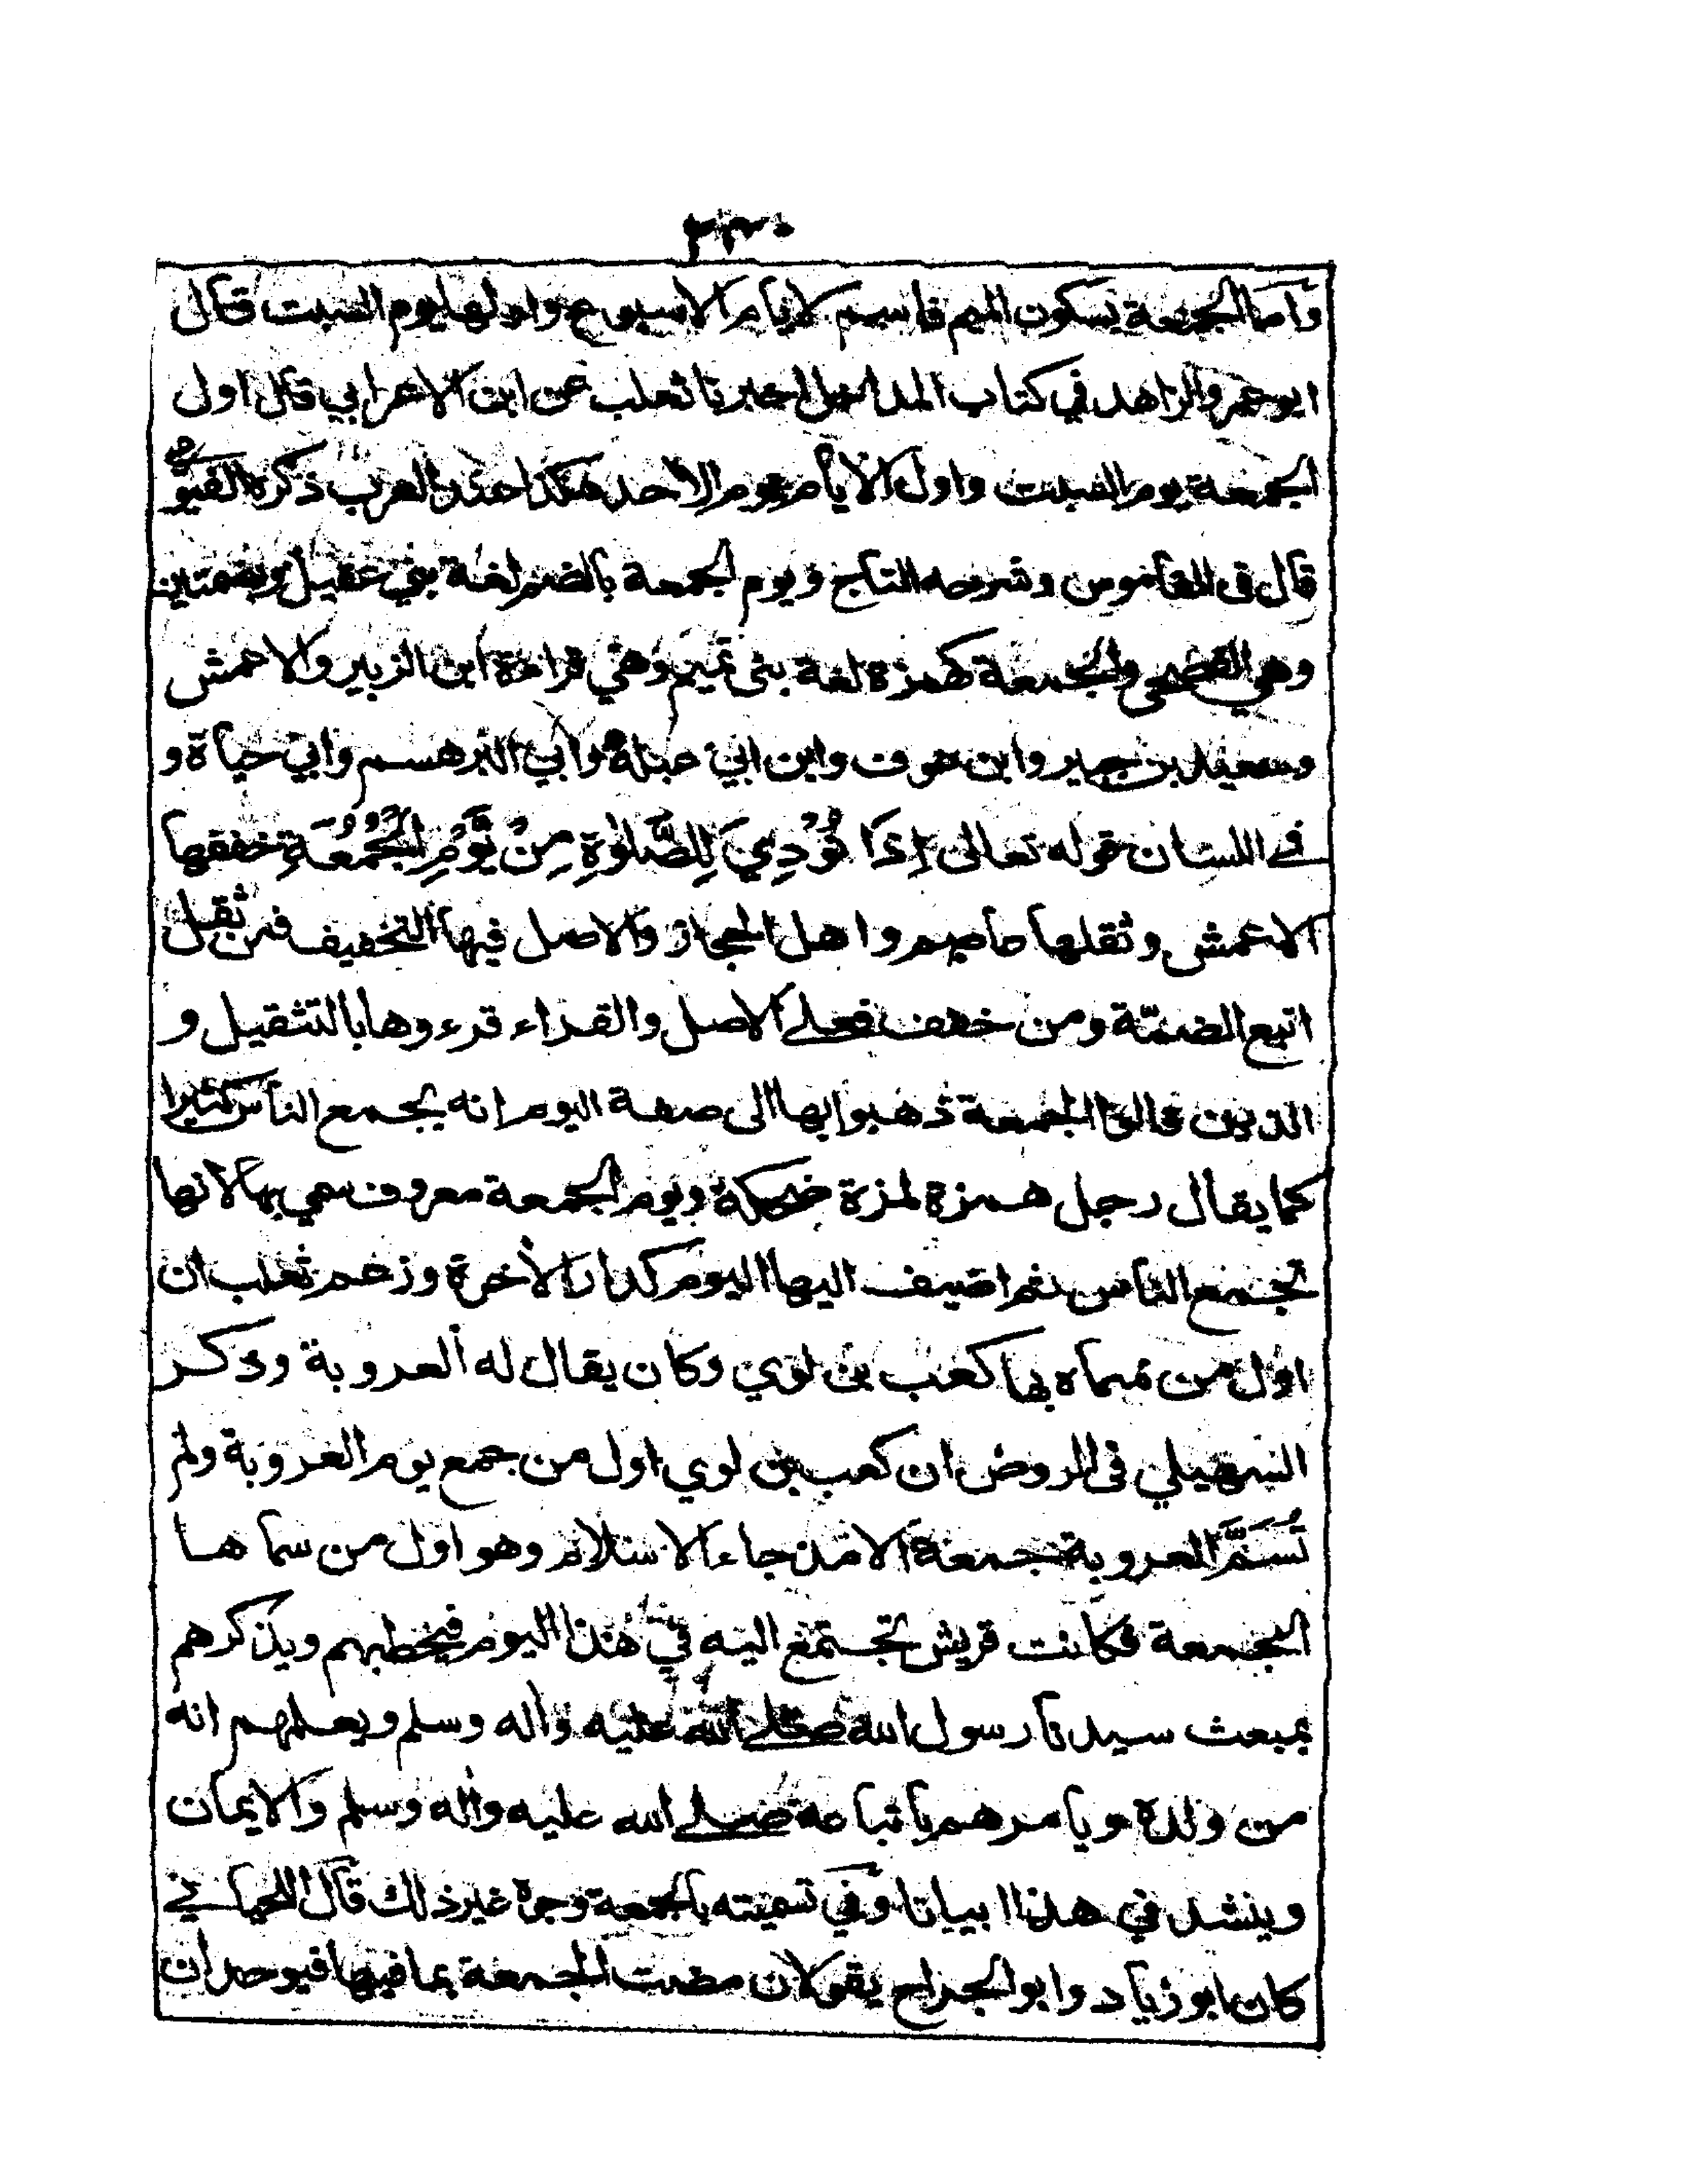 واما الجمعة بسكون الميم فاسم لايام الاسبوع واولها يوم السبت قال
ابو عمر والزاهد في كتاب المداخل اخبرنا ثعلب عن ابن الاعرابي قال اول
الجمعة يوم السبت واول الايام يوم الاحد هكذا عند العرب ذكره الفيومي
قال في القاموس وشرحه التاج ويوم الجمعة بالضم لغة بني عقيل وبضمتين
وهي الفصحى والجمعة كهمزة لغة بنى تميم وهي قراءة ابن الزبير والاعمش
وسعيد بن جبير وابن عوف وابن ابي عبلة وابي البرهسم وابي حياة و
في اللسان قوله تعالى اِذَا نُوْدِيَ لِلصَّلٰوةِ مِنْ يَّوْمِ الْجُمُعَةِ خففها
الاعمش وثقلها عاصم واهل الحجاز والاصل فيها التخفيف فمن ثقل
اتبع الضمة ومن خفف فعلى الاصل والقراء قرءوها بالتثقيل و
الذين قالوا الجمعة ذهبوا بها الى صفة اليوم انه يجمع الناس كثيرا
كما يقال رجل همزة لمزة ضحكة ويوم الجمعة معروف سمي بها لانها
تجمع الناس ثم اضيف اليها اليوم كدار الأخرة وزعم ثعلب ان
اول من سماه بها كعب بن لوي وكان يقال له العروبة وذكر
السهيلي في الروض ان كعب بن لوي اول من جمع يوم العروبة ولم
تُسَمَّ العروبة جمعة الا مذ جاء الاسلام وهو اول من سماها
الجمعة فكانت قريش تجتمع اليه في هذا اليوم فيخطبهم ويذكرهم
بمبعث سيدنا رسول الله صلى الله عليه واٰله وسلم ويعلمهم انه
من ولده ويامرهم باتباعه صلى الله عليه واٰله وسلم والايمان
وينشد في هذا ابياتا وفي تسميته بالجمعة وجوه غير ذلك قال اللحياني
كان ابو زياد وابو الجراح يقولان مضت الجمعة بما فيها فيوحدان